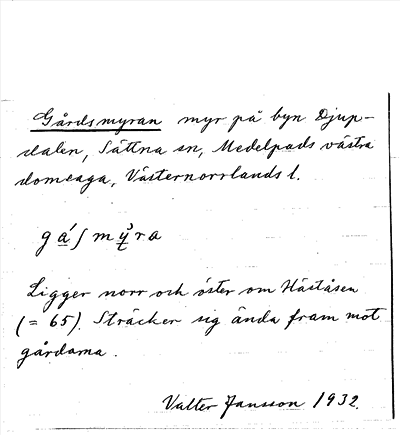 Gårdsmyran myr på byn Djup-
dalen, Sättna sn, Medelpads västra
domsaga, Västernorrlands l.
Ligger norr och öster om Häståsen
(= 65). Sträcker sig ända fram mot
gårdarna.
Valter Jansson 1932.